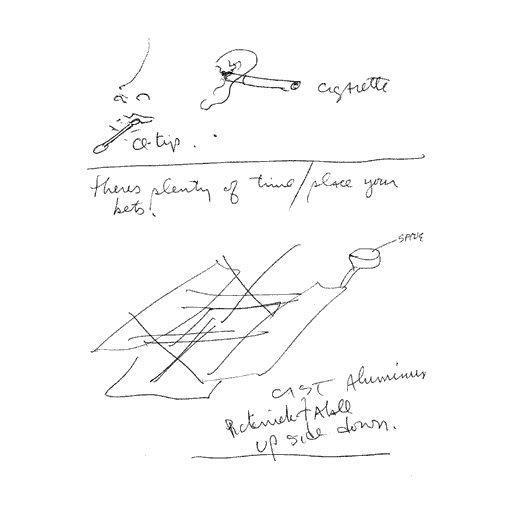 cigarette
Q-tip.
theres plenty of time/place your
bets!
SAME
CAST Aluminum
Picknick table
up side down.